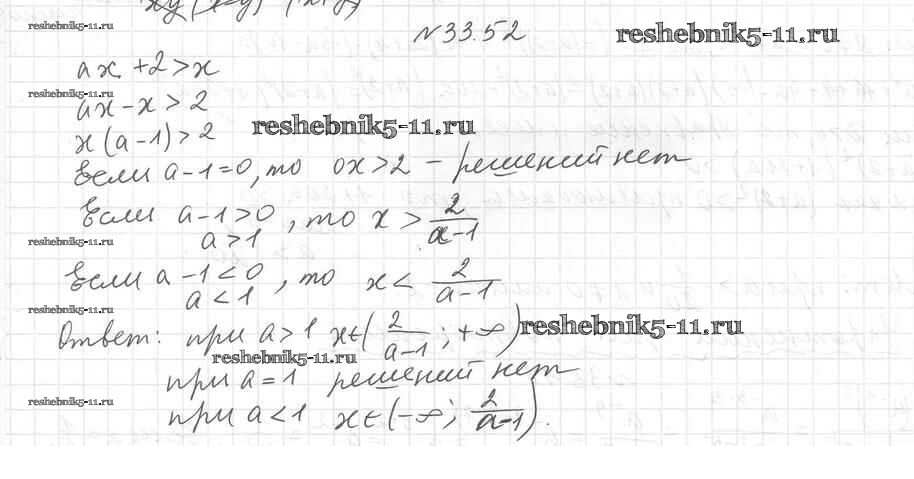 №33.52
reshebnik5-11.ru
reshebnik5-11.ru
ax + 2 > x
reshebnik5-11.ru
ax - x > 2
x(a-1) > 2
reshebnik5-11.ru
Если a-1=0, то 0x>2 - решений нет
Если a-1>0, то x > 2/(a-1)
a>1
reshebnik5-11.ru
Если a-1<0, то x < 2/(a-1)
a<1
reshebnik5-11.ru
Ответ: при a>1 x∈(2/(a-1); +∞)
reshebnik5-11.ru
reshebnik5-11.ru
при a=1 решений нет
reshebnik5-11.ru
при a<1 x∈(-∞; 2/(a-1)).